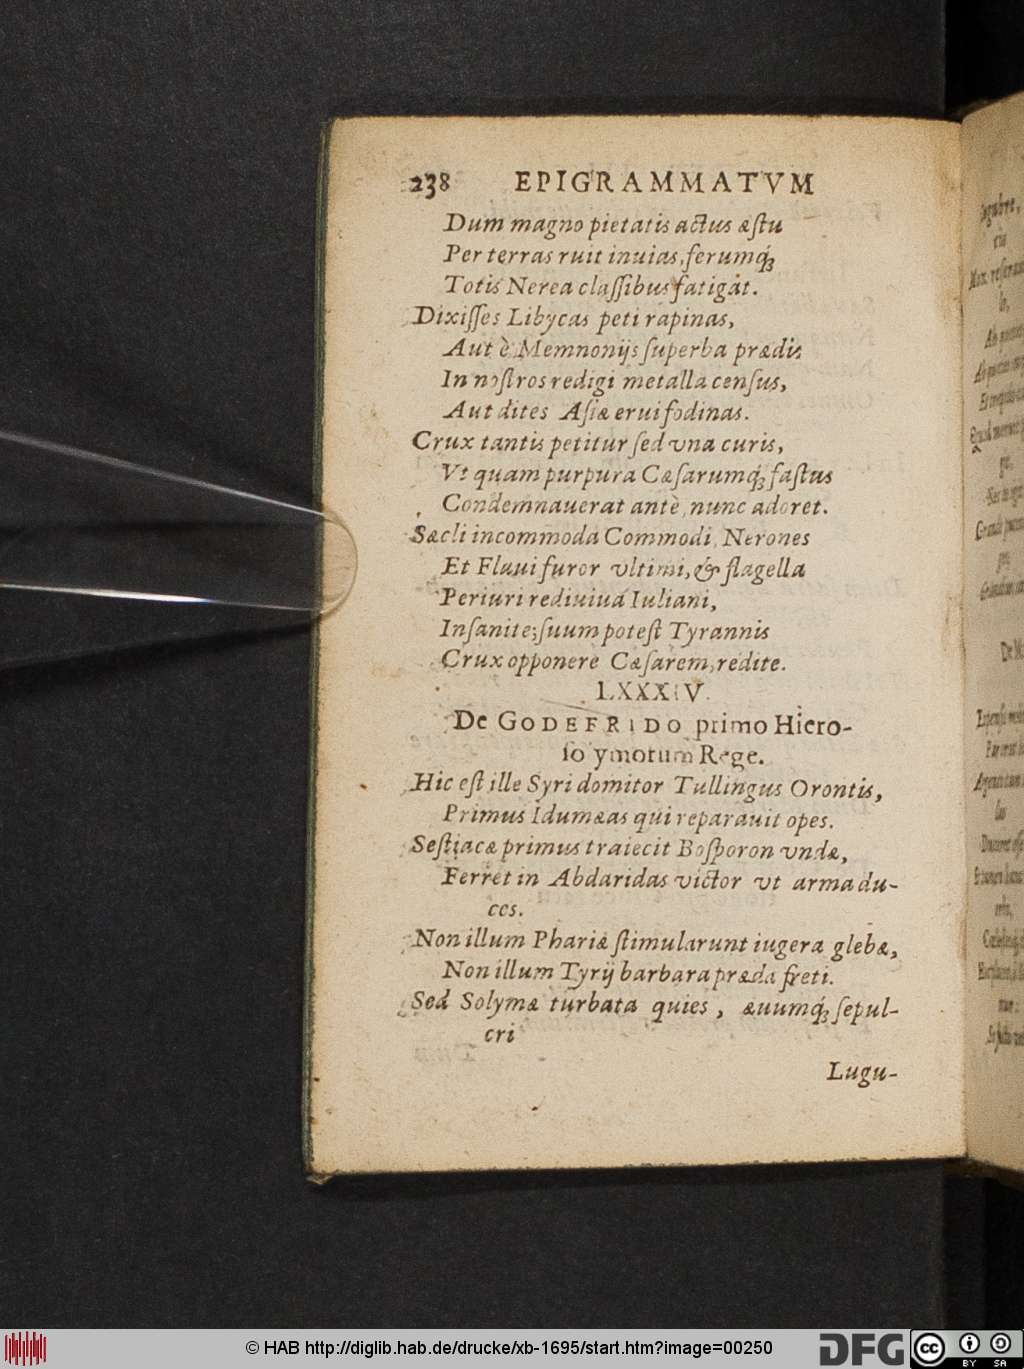 238 EPIGRAMMATVM
Dum magno pietatis actus æstu
Per terras ruit inuias, ferumq́;
Totis Nerea classibus fatigat.
Dixisses Libycas peti rapinas,
Aut è Memnonijs superba prædis
In nostros redigi metalla census,
Aut dites Asiæ erui fodinas.
Crux tantis petitur sed vna curis,
Vt quam purpura Cæsarumq́; fastus
Condemnauerat antè, nunc adoret.
Sæcli incommoda Commodi, Nerones
Et Flaui furor vltimi, & flagella
Periuri rediuiua Iuliani,
Insanite; suum potest Tyrannis
Crux opponere Cæsarem, redite.
LXXXIV.
De GODEFRIDO primo Hiero-
solymorum Rege.
Hic est ille Syri domitor Tullingus Orontis,
Primus Idumæas qui reparauit opes.
Sestiacæ primus traiecit Bosporon vndæ,
Ferret in Abdaridas victor vt arma du-
ces.
Non illum Phariæ stimularunt iugera glebæ,
Non illum Tyrij barbara præda freti.
Sed Solymæ turbata quies, æuumq́; sepul-
cri
Lugu-
© HAB http://diglib.hab.de/drucke/xb-1695/start.htm?image=00250
DFG
cc
BY SA